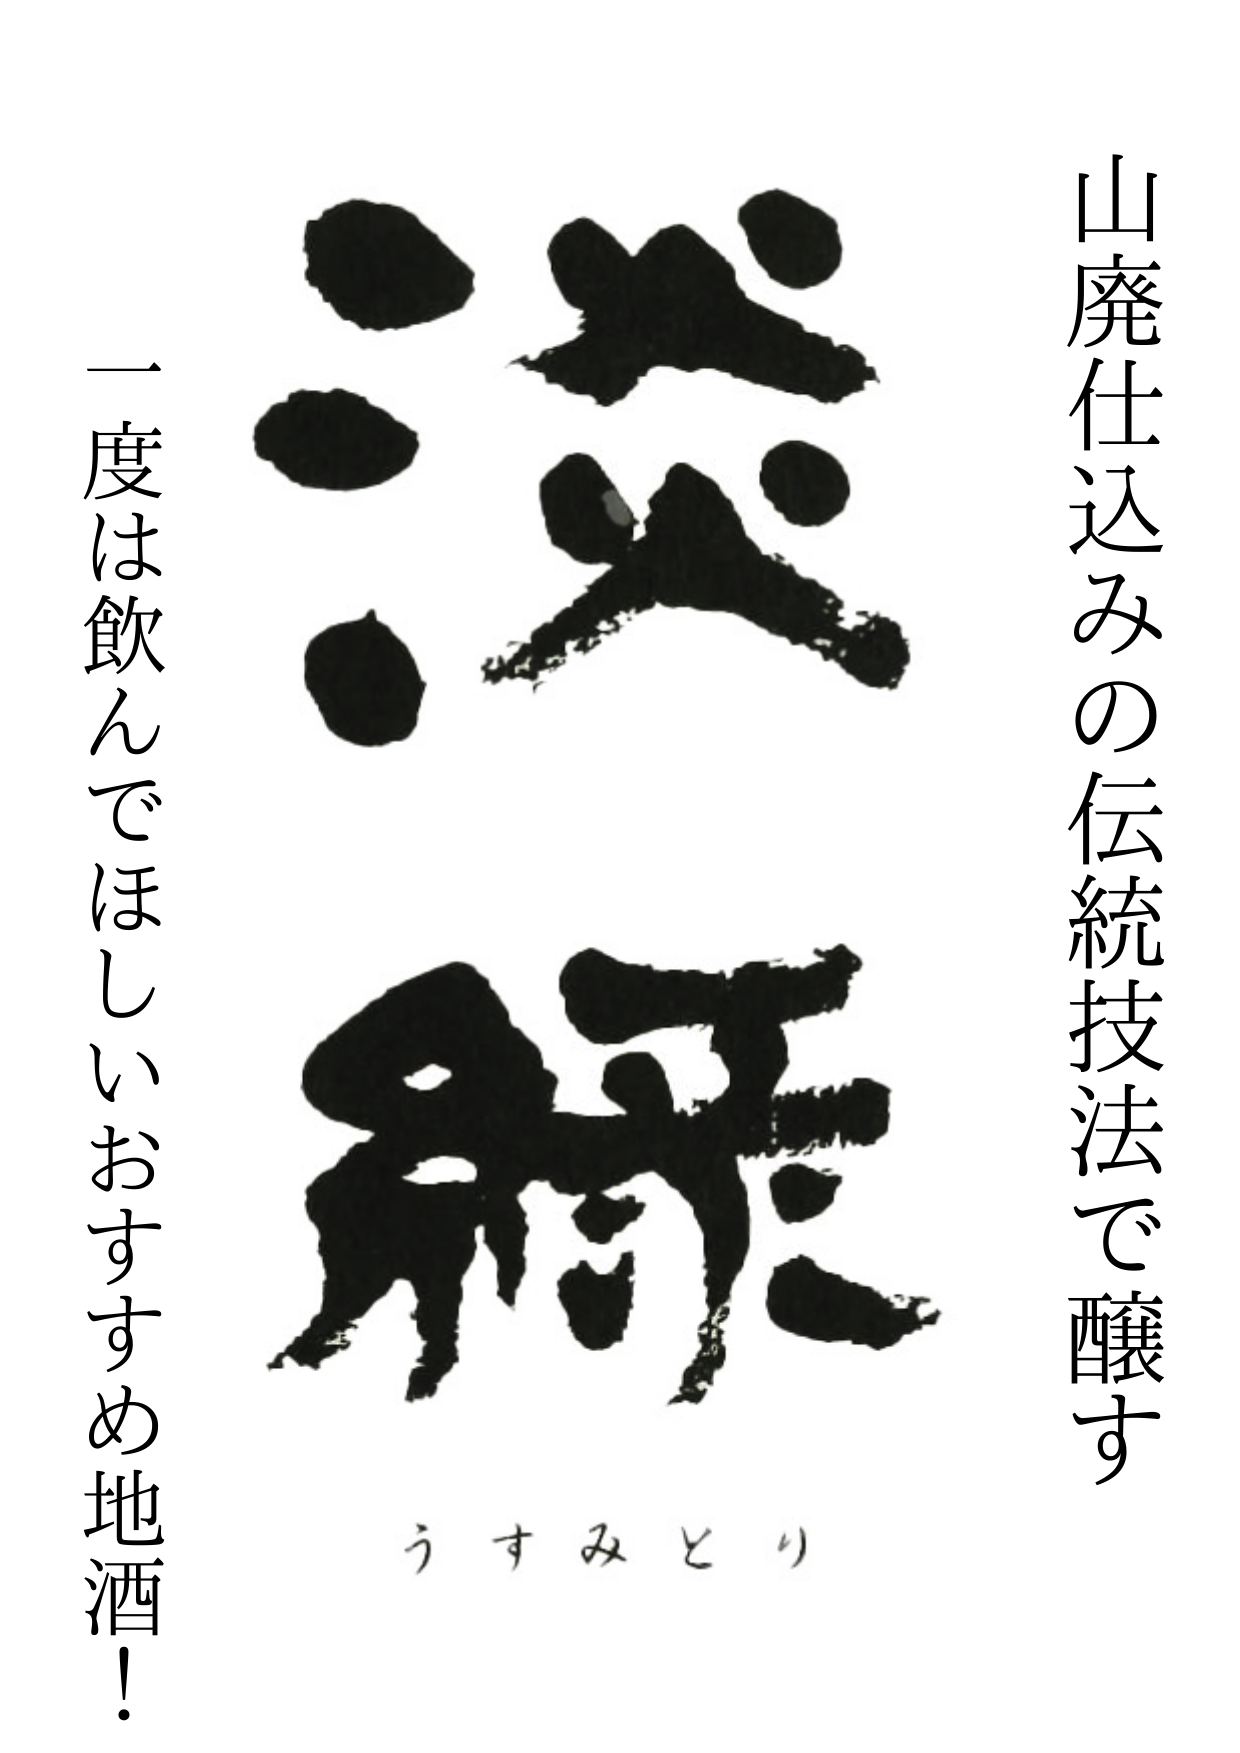 山廃仕込みの伝統技法で醸す
淡緑
うすみとり
一度は飲んでほしいおすすめ地酒！